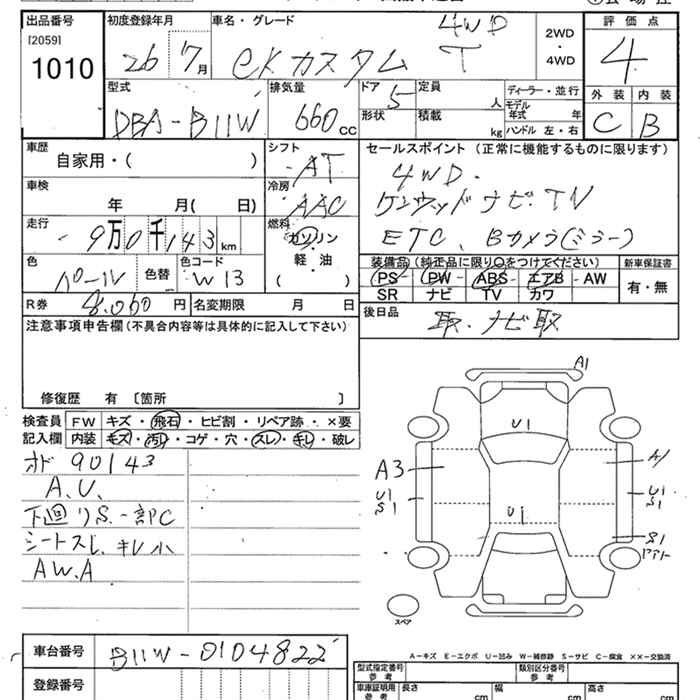 出品番号 初度登録年月 車名・グレード 4WD 2WD・4WD 評価点
[2059]
1010 26 7月 eKカスタム T 4
型式 排気量 ドア 5 定員 人 ディーラー・並行 外装 内装
DBA-B11W 660cc 形状 積載 kg モデル年式 年 ハンドル 左・右 C B
車歴 自家用・( ) シフト AT セールスポイント (正常に機能するものに限ります)
車検 年 月( 日) 冷房 AAC 4WD.
ケンウッドナビ・TV
走行 9万0千143km 燃料 ガソリン・軽・油( ) ETC、Bカメラ(ミラー)
色 パール 色替 色コード W13 装備品(純正品に限り○をつけてください) 新車保証書
PS PW ABS エアB AW 有・無
SR ナビ TV カワ
R券 8,060円 名変期限 月 日
後日品 取、ナビ取
注意事項申告欄(不具合内容等は具体的に記入して下さい)
修復歴 有 〔箇所 〕
検査員記入欄 FW キズ・飛石・ヒビ割・リペア跡・×要
内装 キズ・汚レ・コゲ・穴・スレ・キレ・破レ
オド 90143
A.U、
下廻りS、一部C
シートスレ、キレ小
AW.A
A1
U1
A3
A1
U1
S1
U1
U1
S1
S1
スペア
A-キズ E-エクボ U-凹み W-補修跡 S-サビ C-腐食 ××-交換済
車台番号 B11W-0104822
登録番号
型式指定番号 参考 類別区分番号 参考
車庫証明用 参考 長さ cm 幅 cm 高さ cm